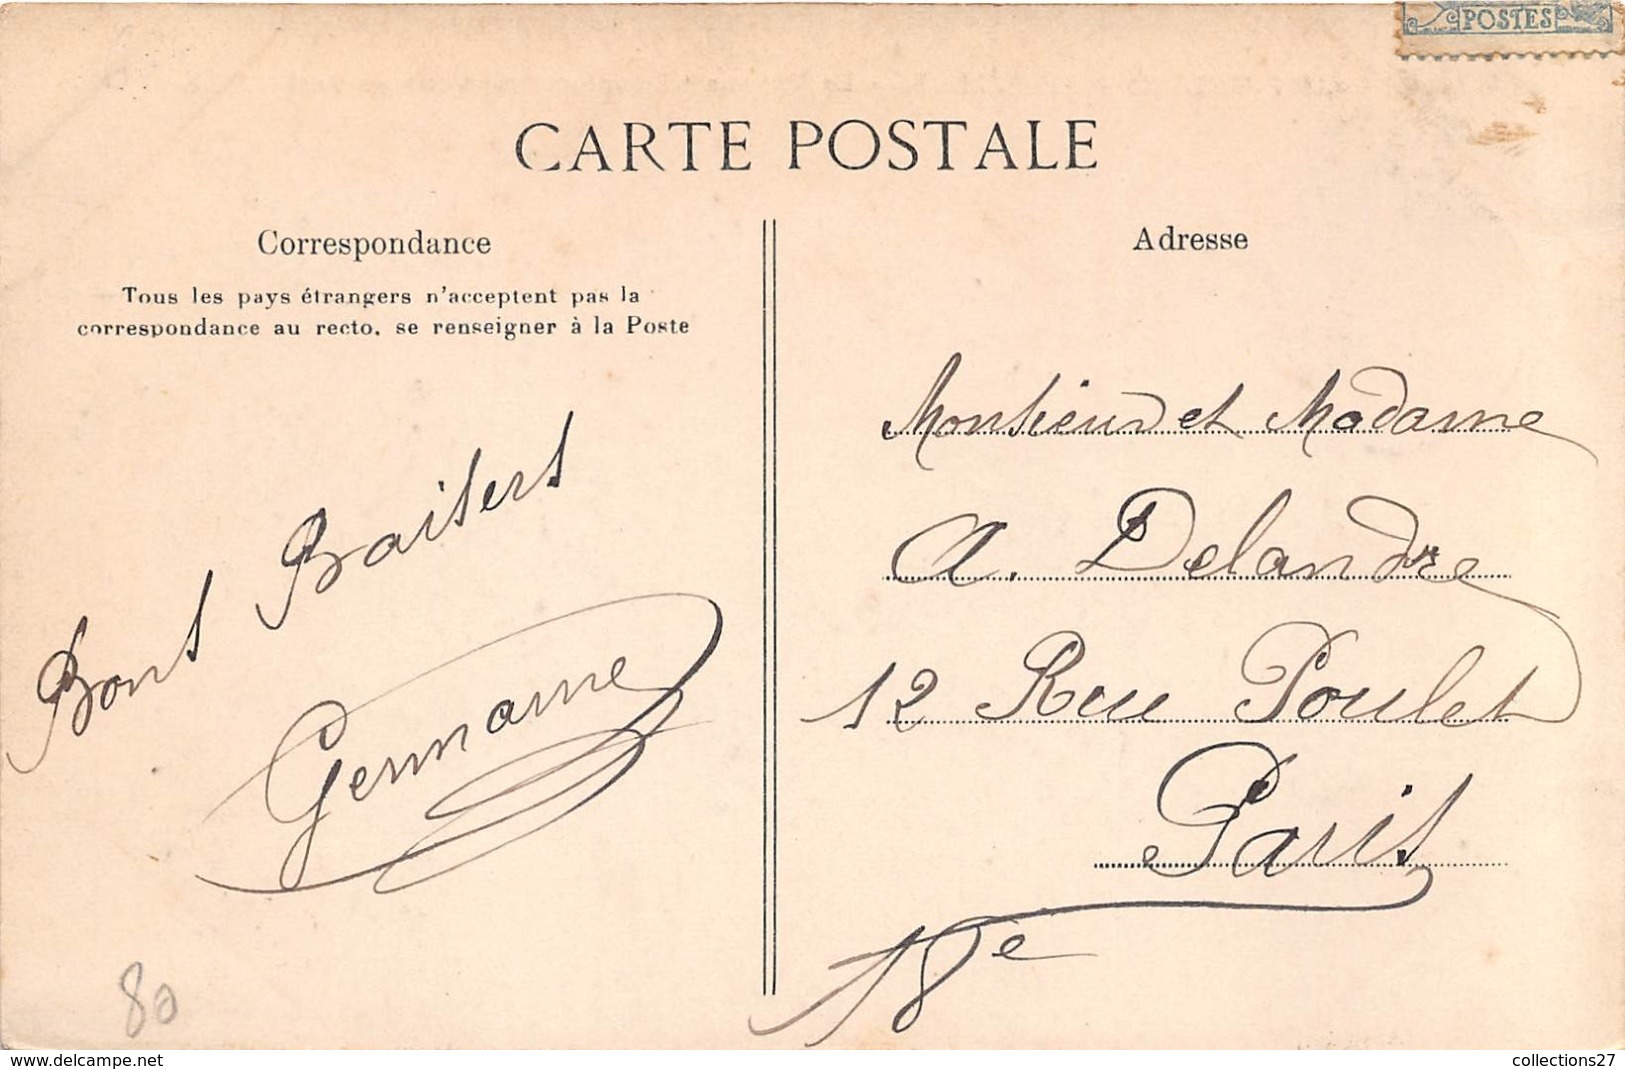 POSTES
CARTE POSTALE
Correspondance
Tous les pays étrangers n'acceptent pas la
correspondance au recto, se renseigner à la Poste
Bons Baisers
Germaine
80
Adresse
Monsieur et Madame
A. Delandre
12 Rue Poulet
Paris
18e
delcampe.net
collections27